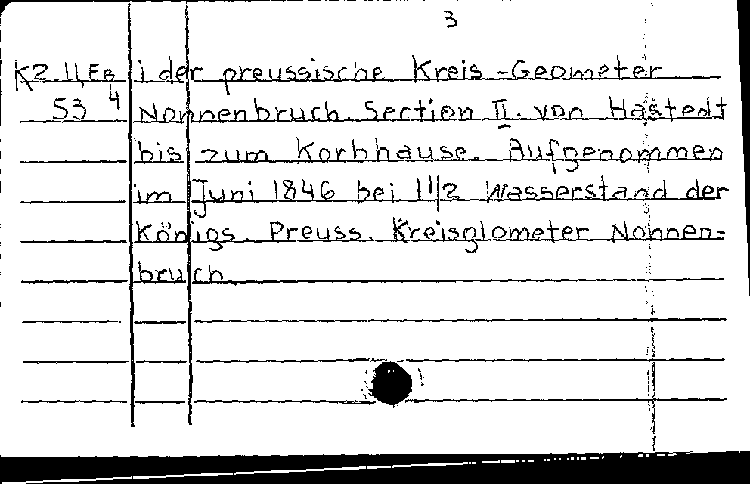 3
K2.II,EB i der preussische Kreis-Geometer
53 4 Nonnenbruch. Section II. von Hastedt
bis zum Korbhause. Aufgenommen
im Juni 1846 bei 1 1/2 Wasserstand der
Königs. Preuss. Kreisglometer Nonnen=
bruch